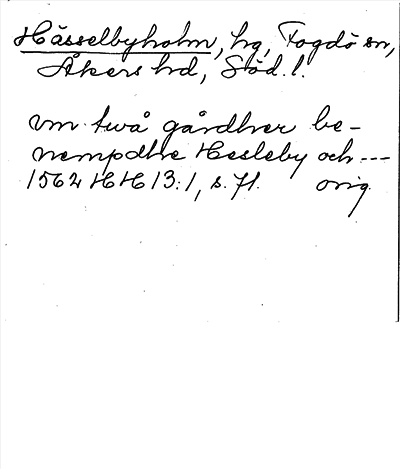 Hässelbyholm, hg, Fogdö sn,
Åkers hd, Söd. l.
um två gårdher be-
nempdhe Hesleby och ---
1562 HH 13:1, s. 71. orig.